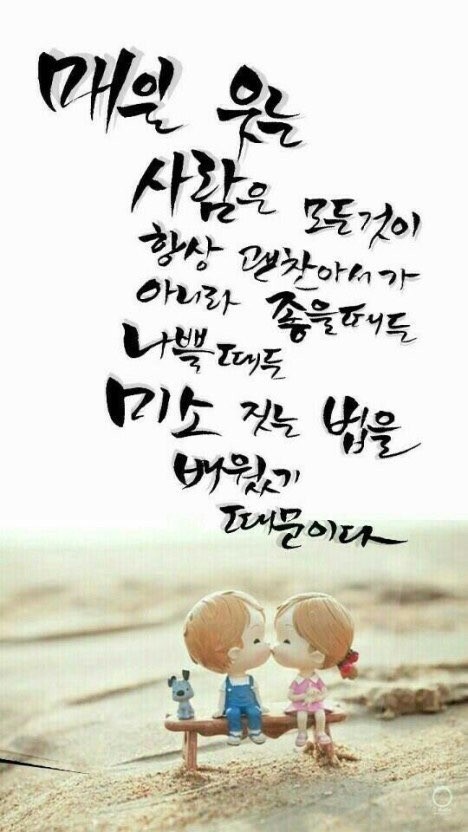 매일 웃는
사람은 모든것이
항상 괜찮아서가
아니라 좋을때든
나쁠때든
미소 짓는 법을
배웠기
때문이다